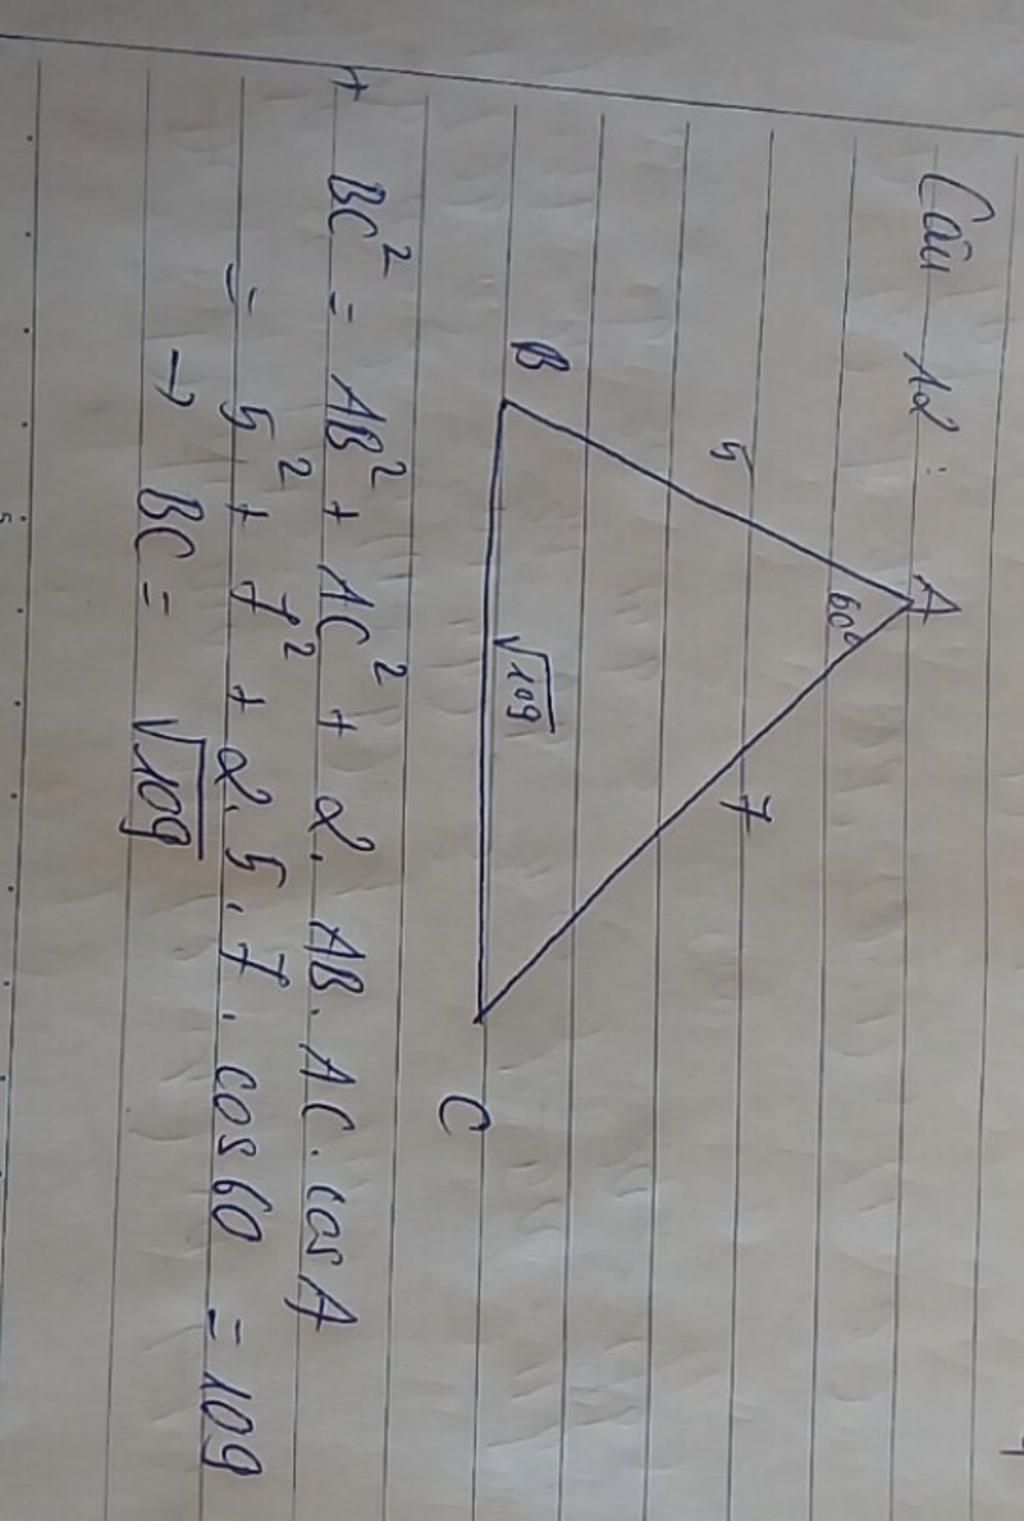 Câu 12:
A
60°
5
7
B
√109
C
+ BC² = AB² + AC² + 2. AB. AC. cos A
= 5² + 7² + 2.5.7. cos 60 = 109
→ BC = √109